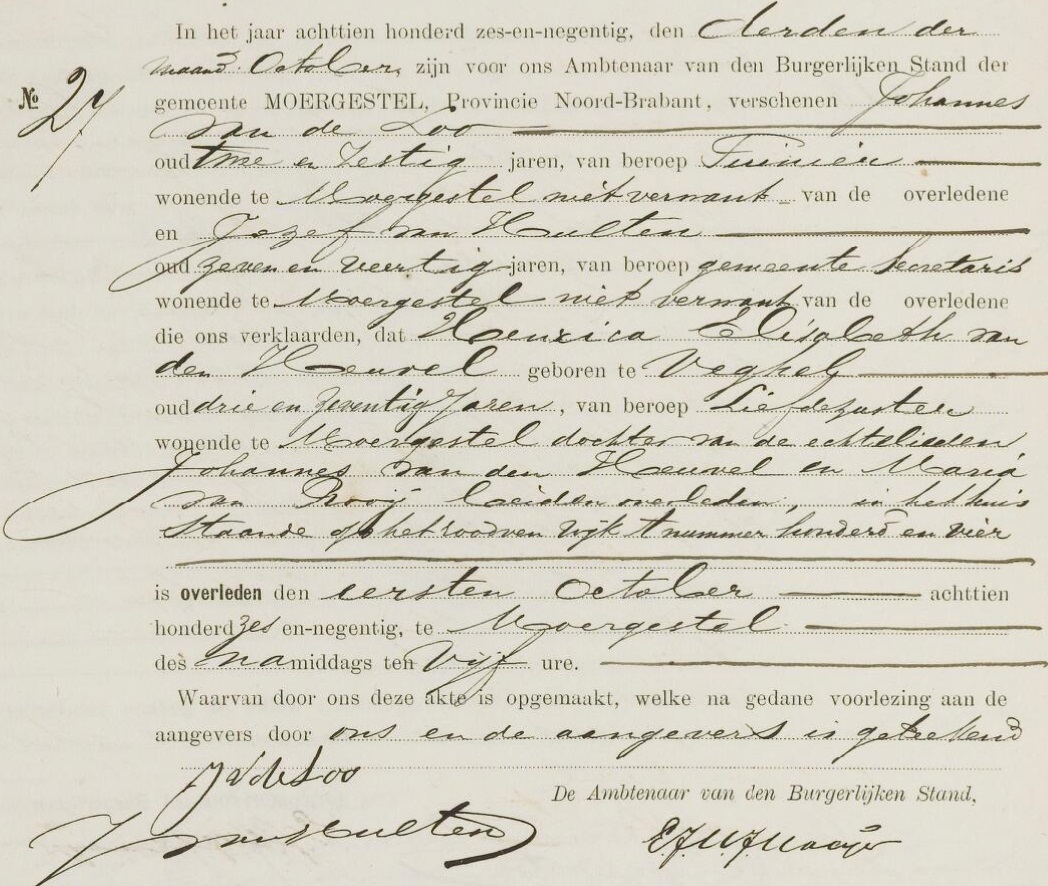 In het jaar achttien honderd zes-en-negentig, den derden der
maand October, zijn voor ons Ambtenaar van den Burgerlijken Stand der
№ 27
gemeente MOERGESTEL, Provincie Noord-Brabant, verschenen Johannes
van de Loo
oud twee en Zestig jaren, van beroep Tuinier
wonende te Moergestel niet verwant van de overledene
en Jozef van Hulten
oud zeven en veertig jaren, van beroep gemeente Secretaris
wonende te Moergestel niet verwant van de overledene
die ons verklaarden, dat Henrica Elisabeth van
den Heuvel geboren te Veghel
oud drie en zeventig Jaren, van beroep Liefdezuster
wonende te Moergestel dochter van de echtelieden
Johannes van den Heuvel en Maria
van Rooij beiden overleden, in het huis
staande op het roodven wijk A nummer honderd en vier
is overleden den eersten October achttien
honderd zes en-negentig, te Moergestel
des namiddags ten Vijf ure.
Waarvan door ons deze akte is opgemaakt, welke na gedane voorlezing aan de
aangevers door ons en de aangevers is getekend
J V de Loo
De Ambtenaar van den Burgerlijken Stand,
J van Hulten